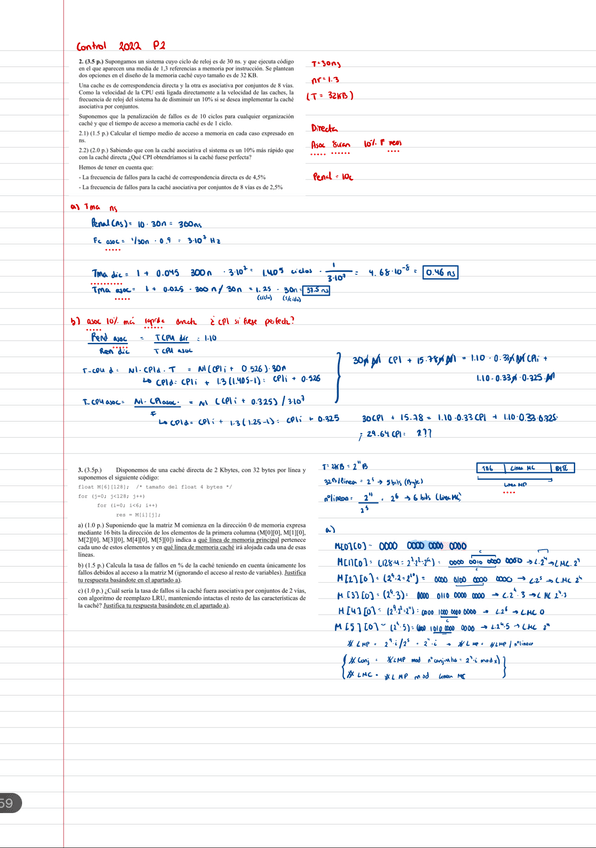 Control 2022 P2
2. (3.5 p.) Supongamos un sistema cuyo ciclo de reloj es de 30 ns. y que ejecuta código
en el que aparecen una media de 1,3 referencias a memoria por instrucción. Se plantean
dos opciones en el diseño de la memoria caché cuyo tamaño es de 32 KB.
Una cache es de correspondencia directa y la otra es asociativa por conjuntos de 8 vías.
Como la velocidad de la CPU está ligada directamente a la velocidad de las caches, la
frecuencia de reloj del sistema ha de disminuir un 10% si se desea implementar la caché
asociativa por conjuntos.
Suponemos que la penalización de fallos es de 10 ciclos para cualquier organización
caché y que el tiempo de acceso a memoria caché es de 1 ciclo.
2.1) (1.5 p.) Calcular el tiempo medio de acceso a memoria en cada caso expresado en
ns.
2.2) (2.0 p.) Sabiendo que con la caché asociativa el sistema es un 10% más rápido que
con la caché directa ¿Qué CPI obtendríamos si la caché fuese perfecta?
Hemos de tener en cuenta que:
- La frecuencia de fallos para la caché de correspondencia directa es de 4,5%
- La frecuencia de fallos para la caché asociativa por conjuntos de 8 vías de 2,5%
T=30ns
nr=1.3
(T = 32KB)
Directa
Asoc 8vias 10%
Penal = 10c
a) Tma ns
Penal(ns) = 10 · 30n = 300ns
Fc asoc = 1/30n · 0.9 = 3·10⁷ Hz
Tma dic = 1 + 0.045 300n · 3·10⁷ = 1.405 ciclos · 1/3·10⁷ = 4.68·10⁻⁸ = 0.46 ns
Tma asoc = 1 + 0.025 · 300n / 30n = 1.25 · 30n = 37.5 ns
b) asoc 10% más rápida directa ¿CPI si fuese perfecta?
Rend asoc / Ren dic = TCPU dic / T CPU asoc = 1.10
T-CPU d = NI·CPId·T = NI(CPIi + 0.526)·30n
↳ CPId = CPIi + 1.3(1.405-1) = CPIi + 0.526
T.CPU asoc = NI·CPIasoc / F = NI (CPIi + 0.325) / 3·10⁷
↳ CPId = CPIi + 1.3(1.25-1) = CPIi + 0.325
30 CPI + 15.78 = 1.10 · 0.33 CPIi +
1.10 · 0.33 · 0.325
30CPI + 15.78 = 1.10·0.33 CPI + 1.10·0.33·0.325
; 29.64 CPI = ???
3. (3.5p.) Disponemos de una caché directa de 2 Kbytes, con 32 bytes por línea y
suponemos el siguiente código:
float M[6][128]; /* tamaño del float 4 bytes */
for (j=0; j<128; j++)
for (i=0; i<6; i++)
res = M[i][j];
a) (1.0 p.) Suponiendo que la matriz M comienza en la dirección 0 de memoria expresa
mediante 16 bits la dirección de los elementos de la primera columna (M[0][0], M[1][0],
M[2][0], M[3][0], M[4][0], M[5][0]) indica a qué línea de memoria principal pertenece
cada uno de estos elementos y en qué línea de memoria caché irá alojada cada una de esas
líneas.
b) (1.5 p.) Calcula la tasa de fallos en % de la caché teniendo en cuenta únicamente los
fallos debidos al acceso a la matriz M (ignorando el acceso al resto de variables). Justifica
tu respuesta basándote en el apartado a).
c) (1.0 p.) ¿Cuál sería la tasa de fallos si la caché fuera asociativa por conjuntos de 2 vías,
con algoritmo de reemplazo LRU, manteniendo intactas el resto de las características de
la caché? Justifica tu respuesta basándote en el apartado a).
T = 2KB = 2¹¹ B
32B/linea = 2⁵ → 5 bits (Byte)
nºlineas = 2¹¹ / 2⁵ = 2⁶ → 6 bits (Linea MC)
TAG Linea MC BYTE
Linea MP
a)
M[0][0] - 0000 0000 0000 0000
M[1][0] = (128·4 = 2⁷·2²·2⁹) = 0000 0010 0000 0000 → L2⁴ → LMC 2⁴
M[2][0] = (2⁹·2 = 2¹⁰) = 0000 0100 0000 0000 → L2⁵ → LMC 2⁵
M[3][0] = (2⁹·3) = 0000 0110 0000 0000 → L2⁴·3 → LMC 2⁴·3
M[4][0] = (2⁹·2²=2¹¹) = 0000 1000 0000 0000 → L2⁶ → LMC 0
M[5][0] = (2⁹·5) = 0000 1010 0000 0000 → L2⁴·5 → LMC 2⁴
# LMP = 2⁹·i/2⁵ = 2⁴·i → # LMC = #LMP / nºlineas
# Conj = #LMP mod nºconjuntos = 2⁴·i mod
# LMC = #LMP mod Lineas MC
59